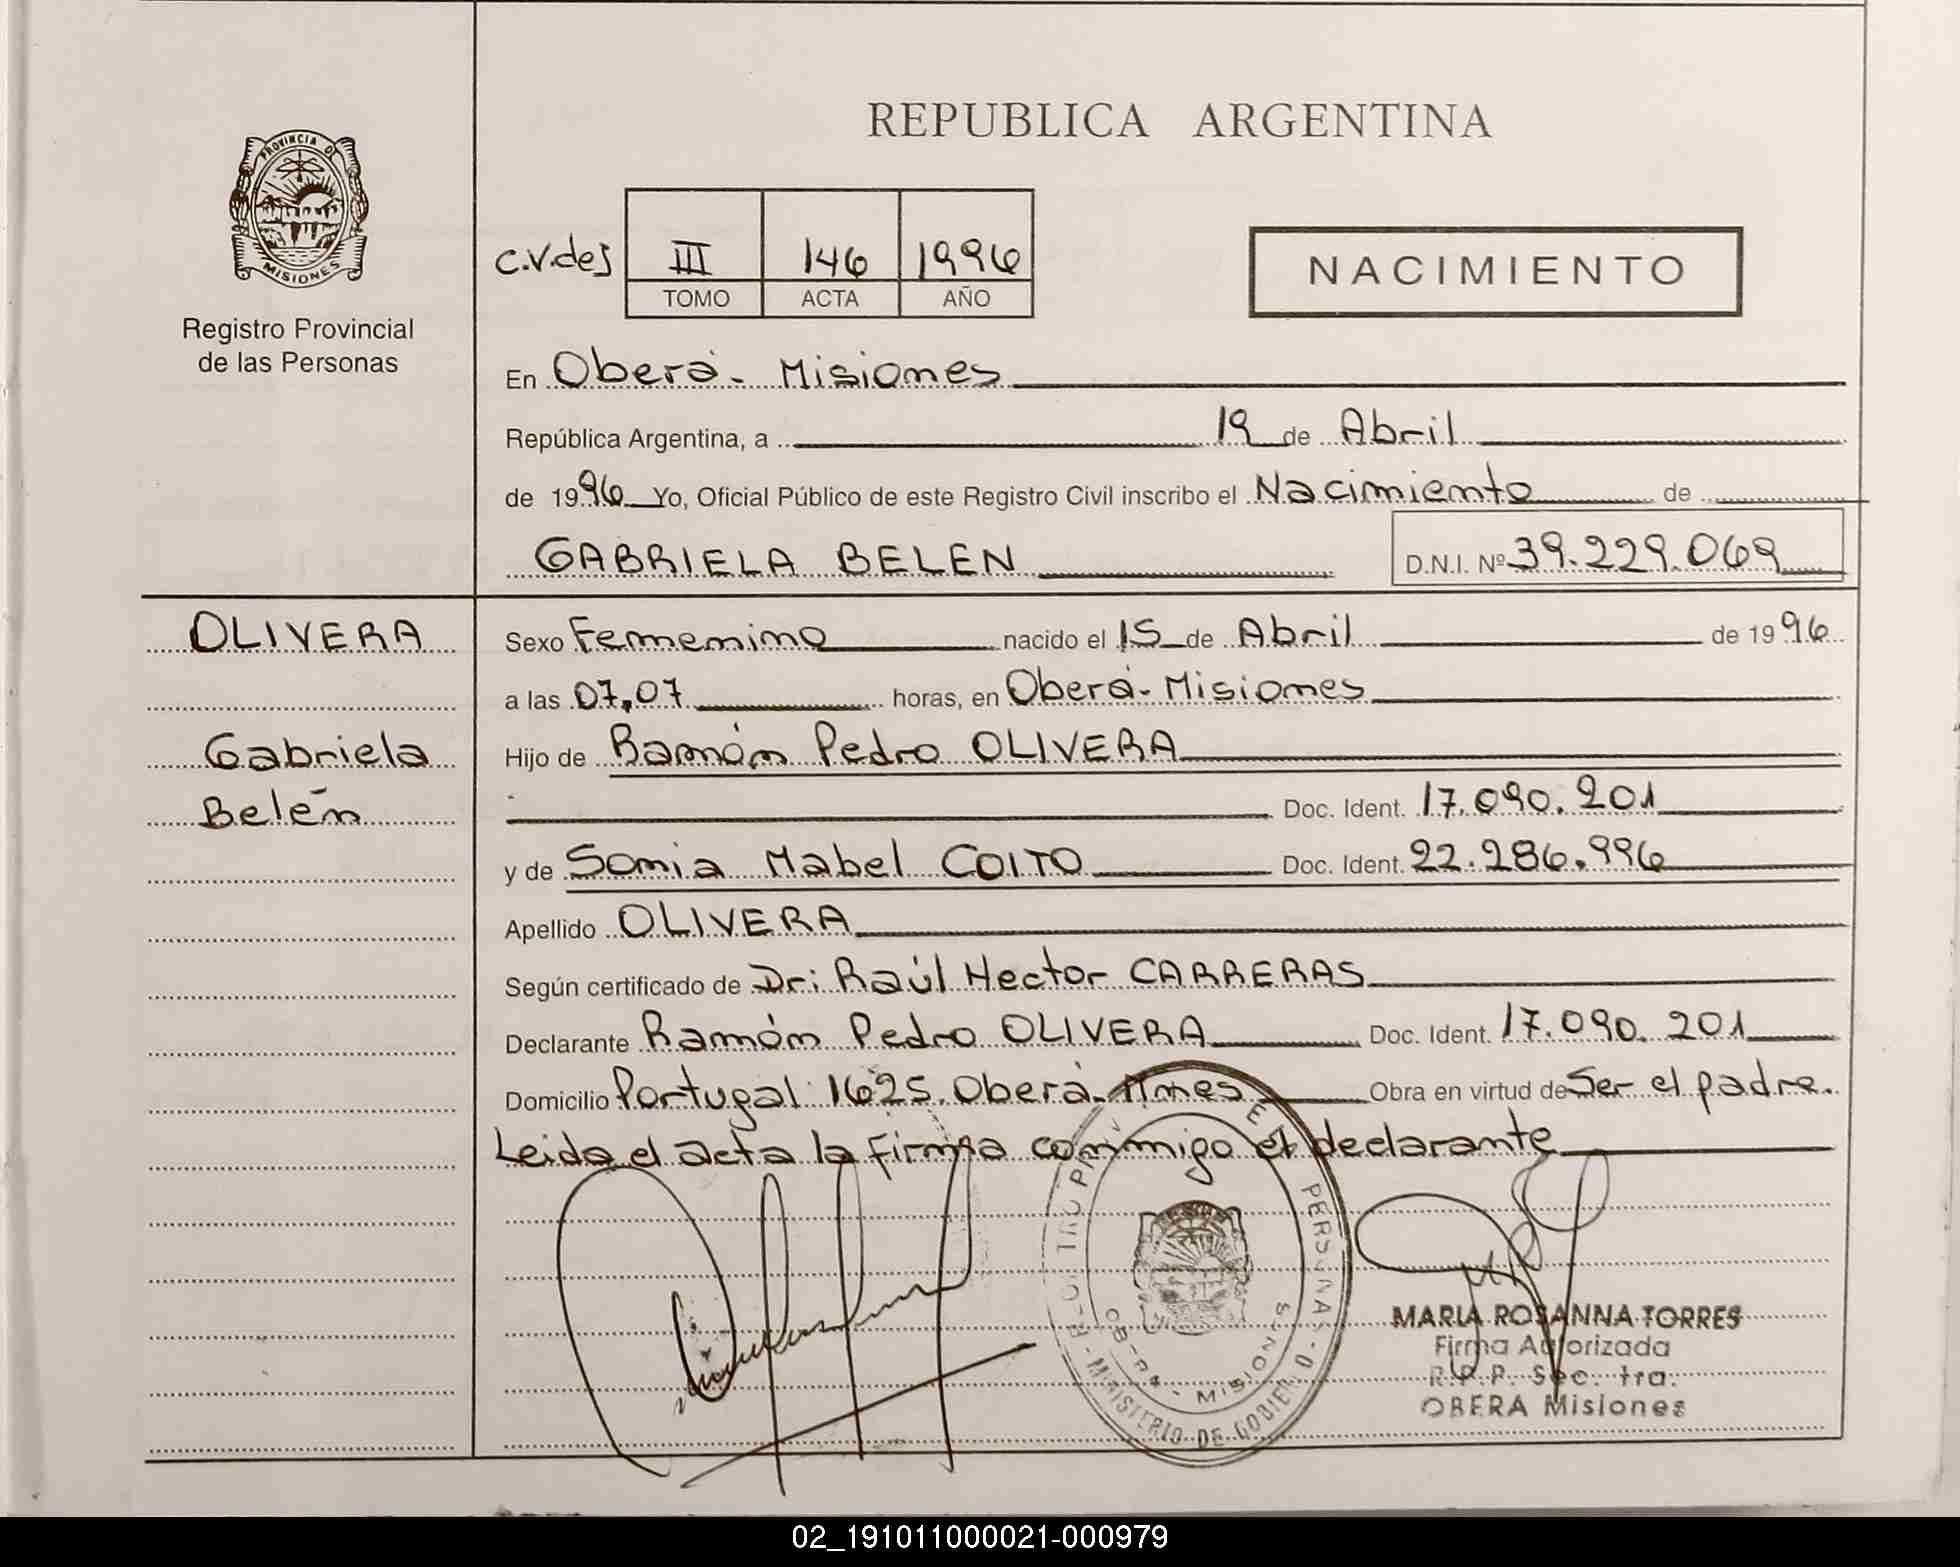 PROVINCIA DE
MISIONES
Registro Provincial
de las Personas
REPUBLICA ARGENTINA
c.v.des III 146 1996
TOMO ACTA AÑO
NACIMIENTO
En Oberá - Misiones
República Argentina, a 19 de Abril
de 1996 Yo, Oficial Público de este Registro Civil inscribo el Nacimiento de
GABRIELA BELEN D.N.I. Nº 39.229.069
OLIVERA
Gabriela
Belén
Sexo Femenino nacido el 15 de Abril de 1996
a las 07,07 horas, en Oberá - Misiones
Hijo de Ramón Pedro OLIVERA
Doc. Ident. 17.090.201
y de Sonia Mabel COITO Doc. Ident. 22.286.996
Apellido OLIVERA
Según certificado de Dr: Raúl Hector CARRERAS
Declarante Ramón Pedro OLIVERA Doc. Ident. 17.090.201
Domicilio Portugal 1625. Oberá - Mnes Obra en virtud de Ser el padre.
Leida el acta la firma conmigo el declarante
MINISTERIO DE GOBIERNO
MISIONES
MARIA ROSANNA TORRES
Firma Autorizada
R.P.P. Sec. 1ra.
OBERA Misiones
02_191011000021-000979